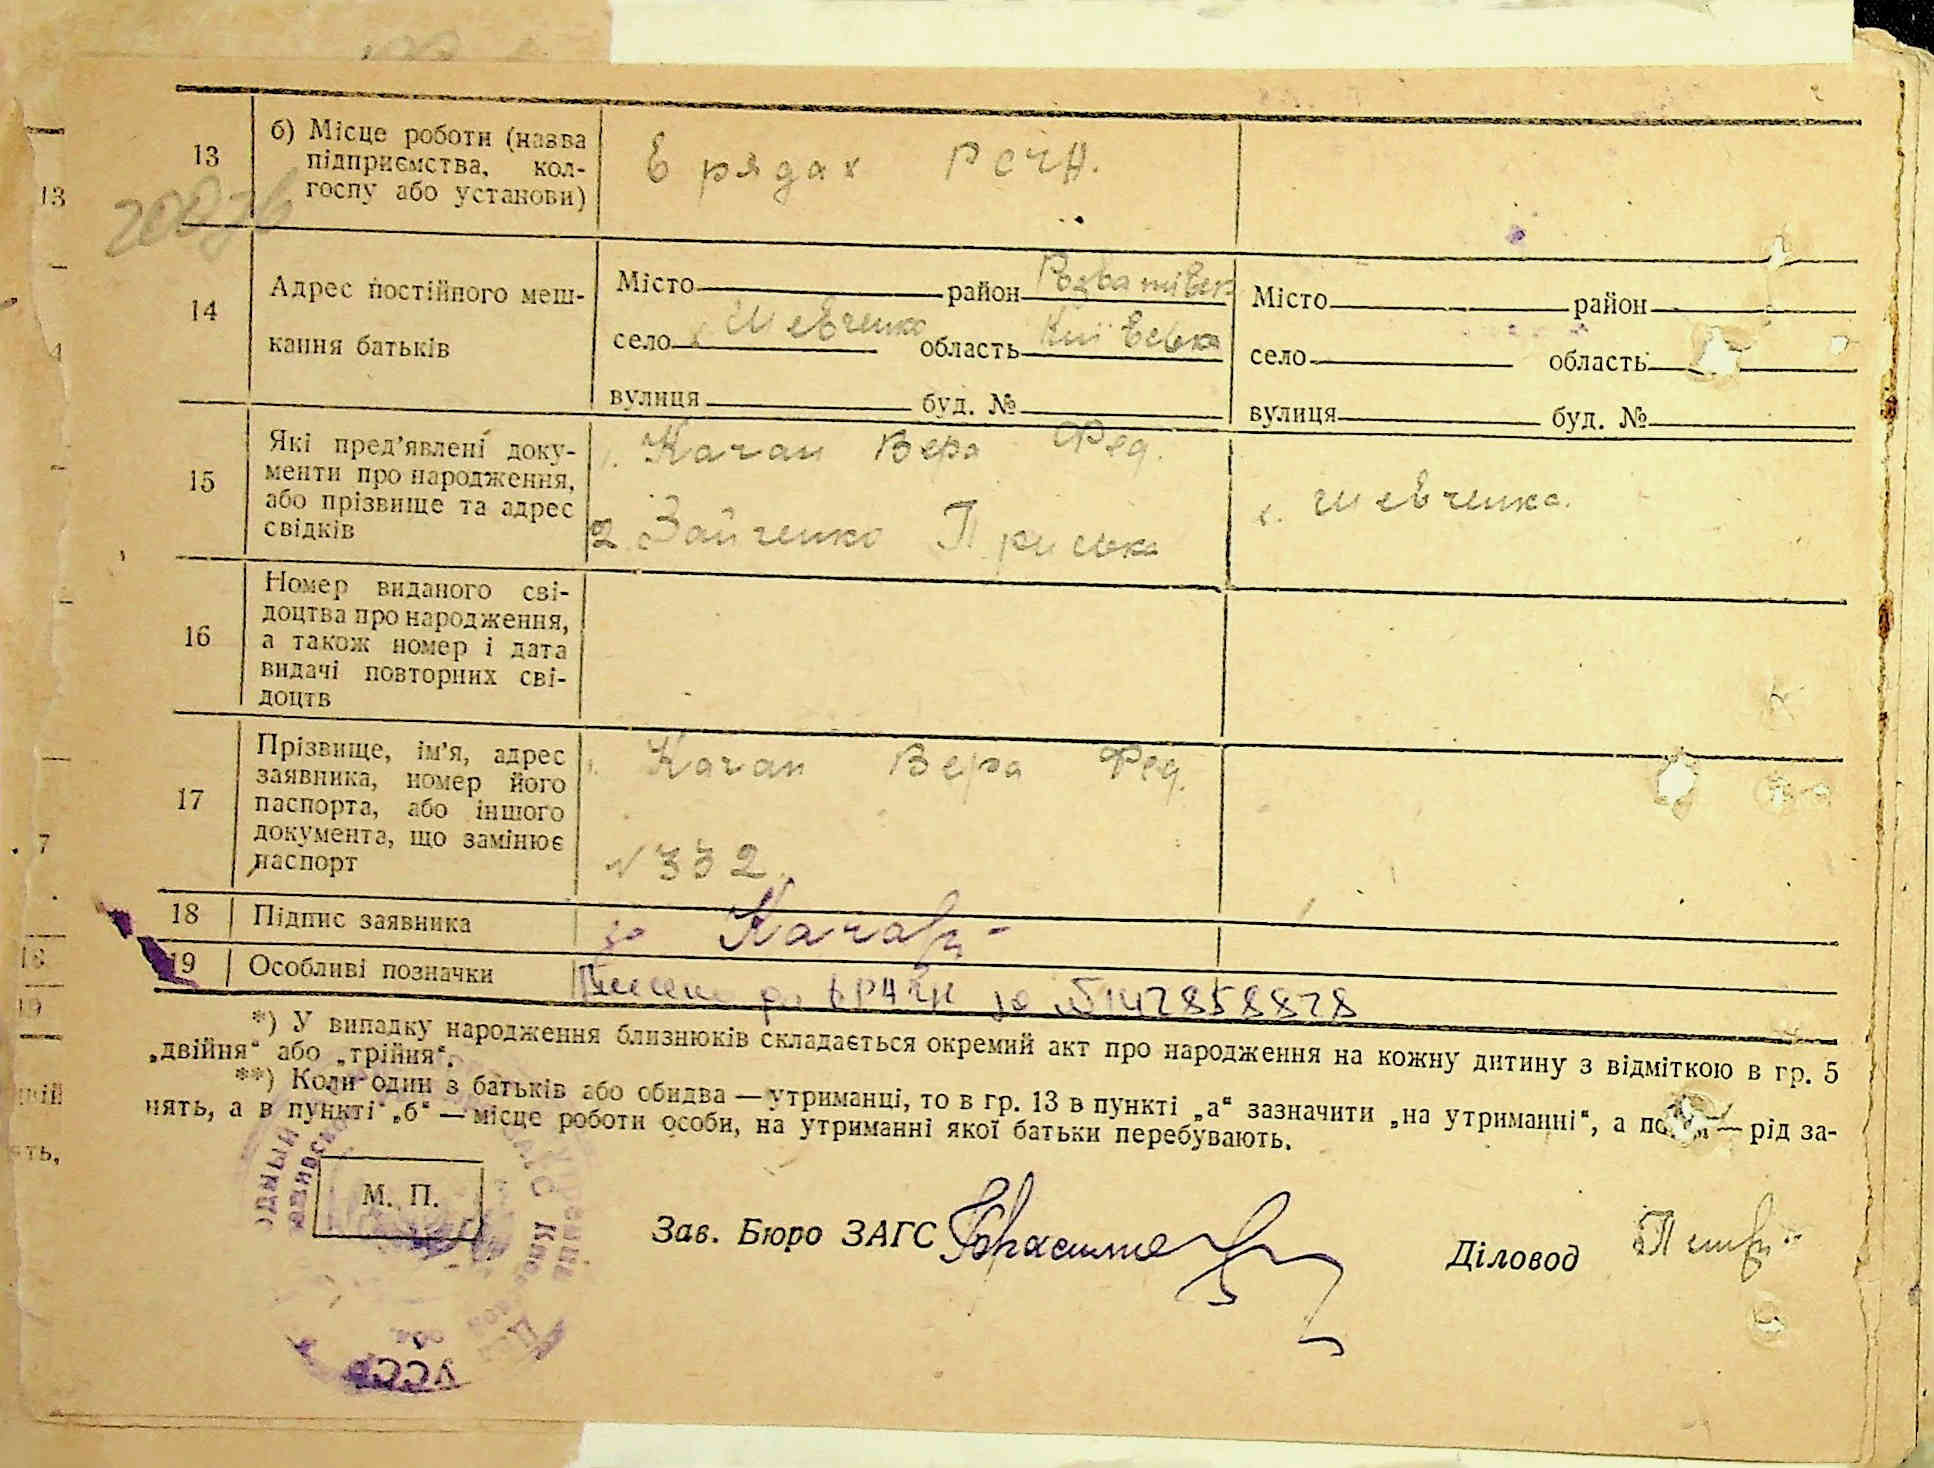 13
б) Місце роботи (назва
підприємства, кол-
госпу або установи)
В рядах РСЧА.
14
Адрес постійного меш-
кання батьків
Місто район
село с. Шевченко область Київська
вулиця буд. №
Місто район
село область
вулиця буд. №
15
Які пред'явлені доку-
менти про народження,
або прізвище та адрес
свідків
1. Качан Вера Фед.
2. Зайченко Приська
с. Шевченка.
16
Номер виданого сві-
доцтва про народження,
а також номер і дата
видачі повторних сві-
доцтв
17
Прізвище, ім'я, адрес
заявника, номер його
паспорта, або іншого
документа, що замінює
паспорт
1. Качан Вера Фед.
№ 332.
18 Підпис заявника
19 Особливі позначки
за № 147858878
*) У випадку народження близнюків складається окремий акт про народження на кожну дитину з відміткою в гр. 5
„двійня“ або „трійня“.
**) Коли один з батьків або обидва — утриманці, то в гр. 13 в пункті „а“ зазначити „на утриманні“, а по — рід за-
нять, а в пункті „б“ — місце роботи особи, на утриманні якої батьки перебувають.
М. П.
УССР
Зав. Бюро ЗАГС
Діловод